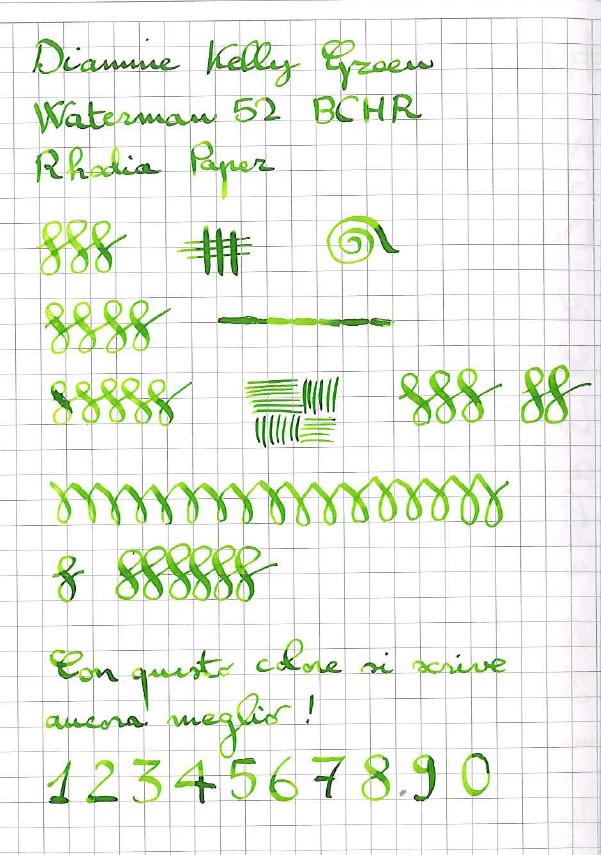 Diamine Kelly Green
Waterman 52 BCHR
Rhodia Paper
Con questo colore si scrive
ancora meglio!
1 2 3 4 5 6 7 8.9 0